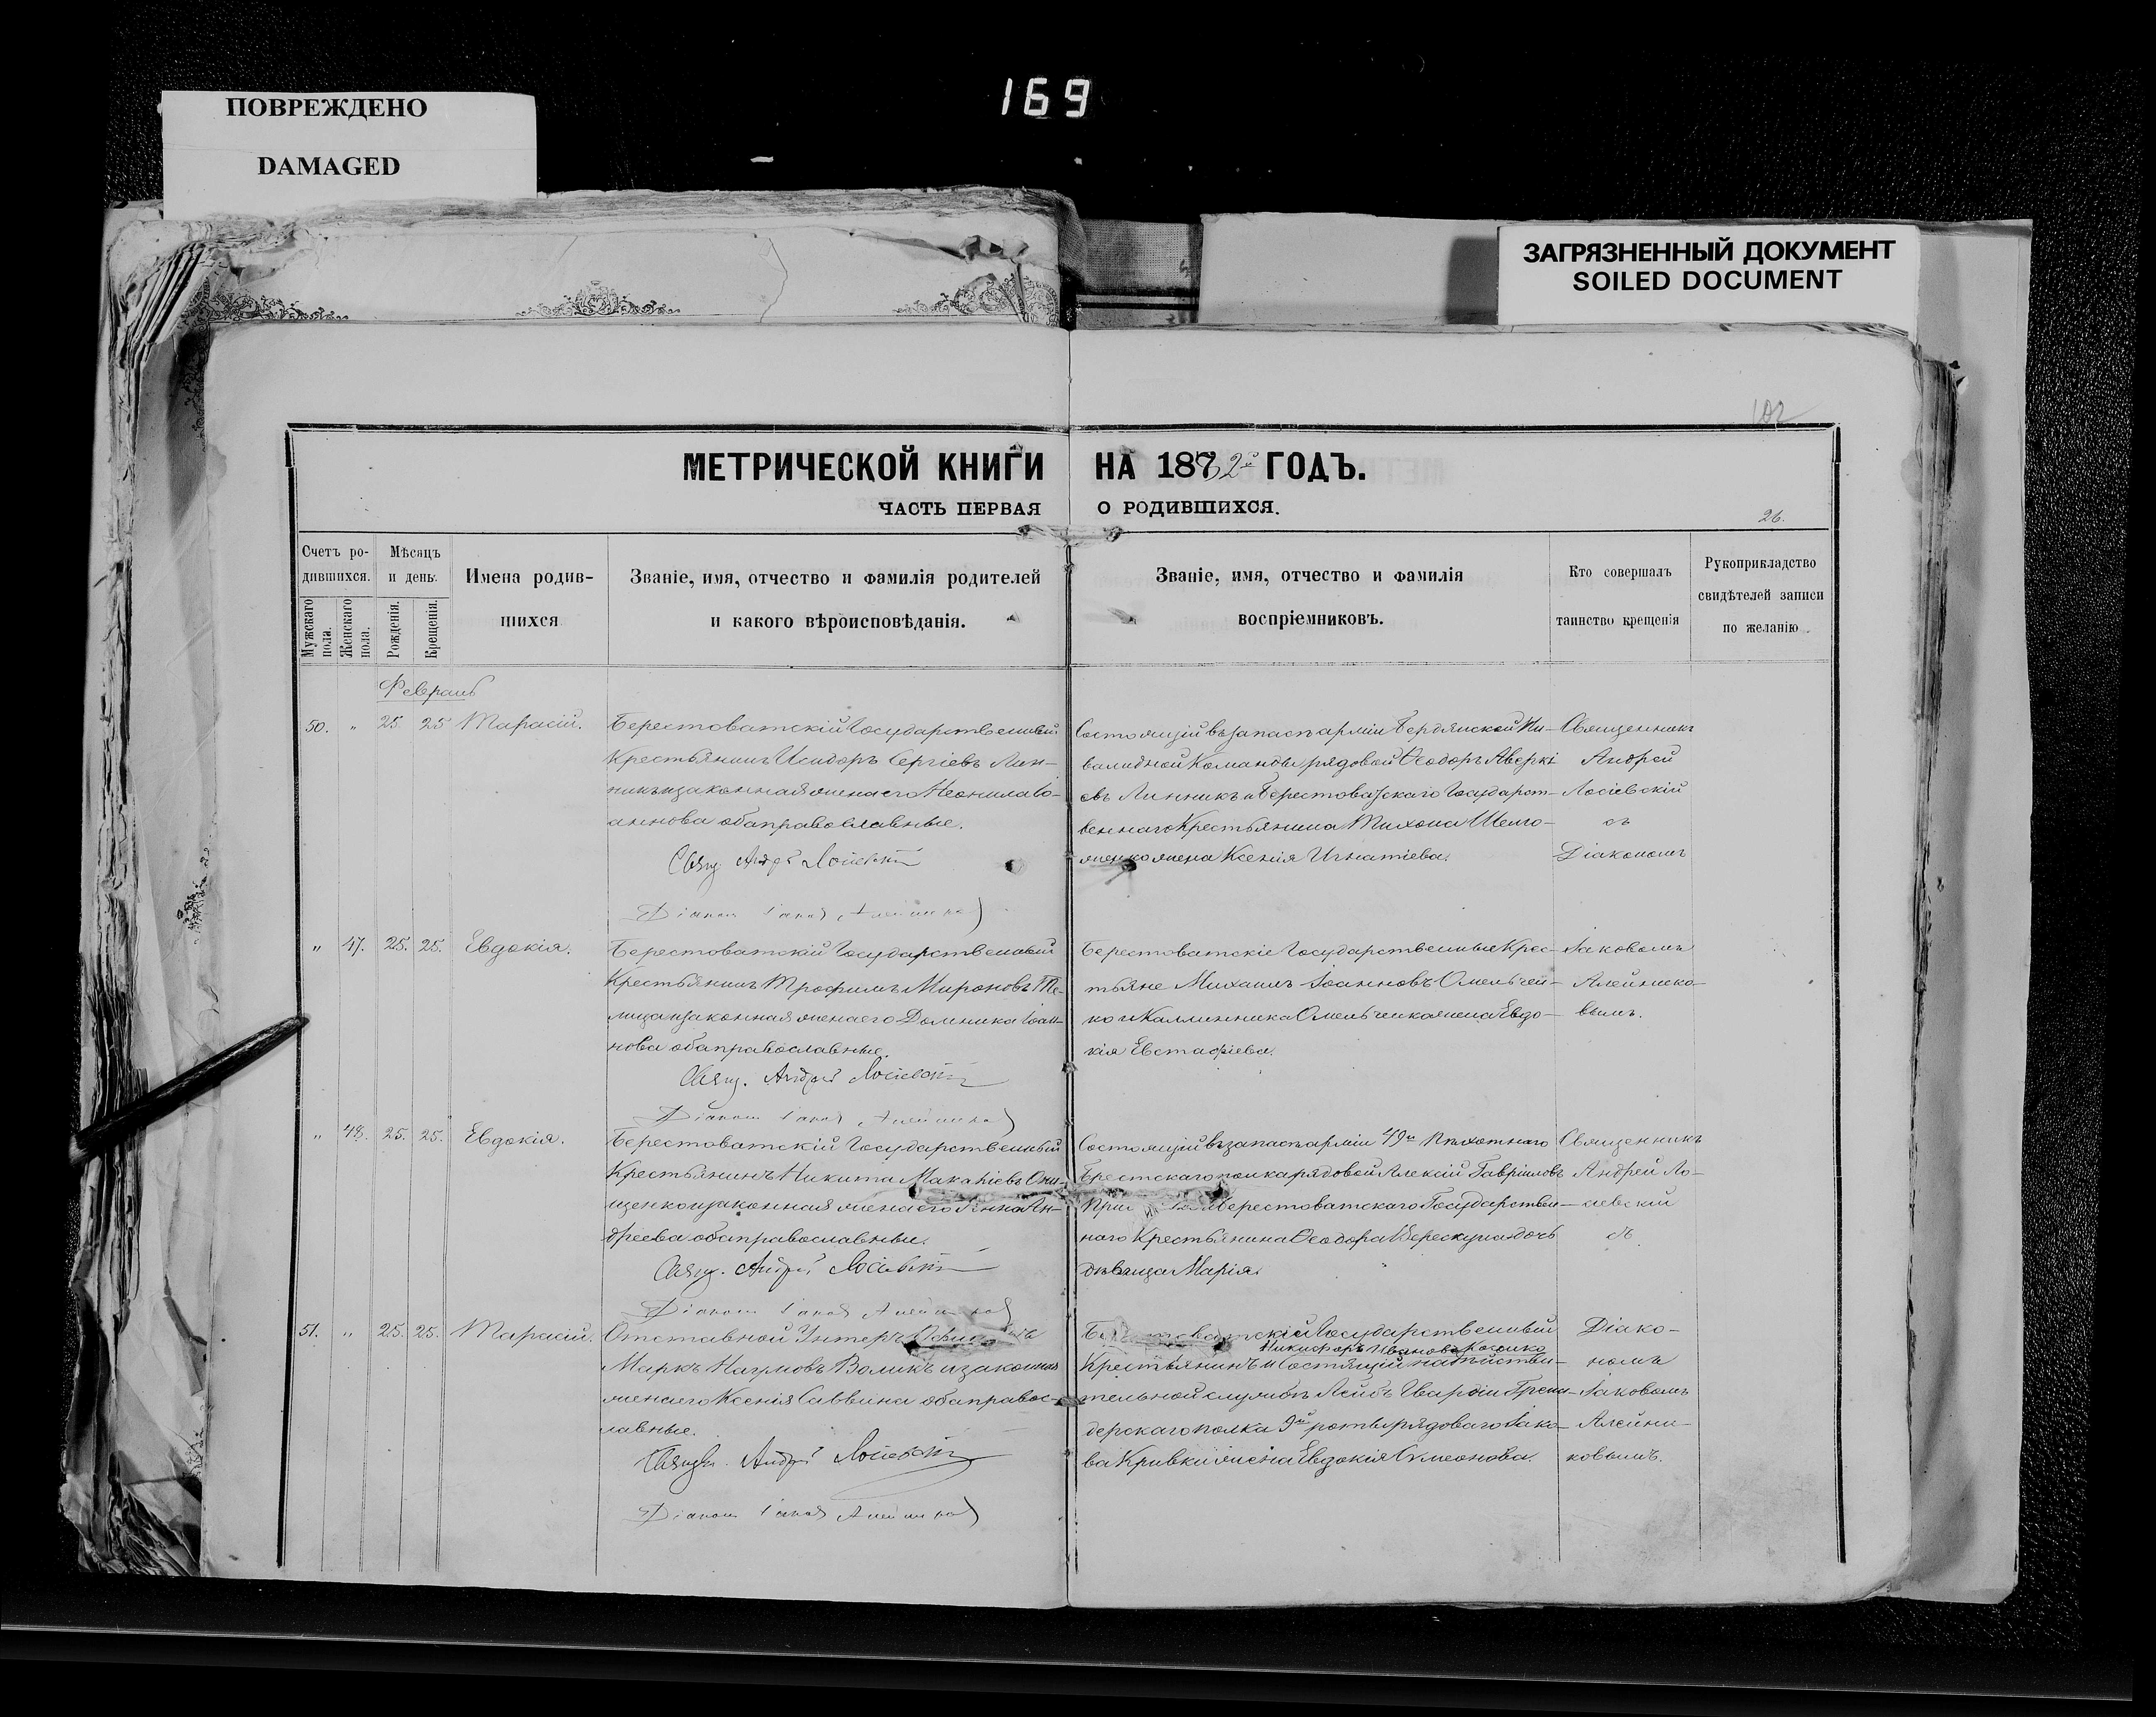 169
ПОВРЕЖДЕНО
DAMAGED
ЗАГРЯЗНЕННЫЙ ДОКУМЕНТ
SOILED DOCUMENT
102
МЕТРИЧЕСКОЙ КНИГИ НА 1882й ГОДЪ.
ЧАСТЬ ПЕРВАЯ О РОДИВШИХСЯ.
26.
Счетъ ро-
дившихся.
Мужскаго пола.
Женскаго пола.
Мѣсяцъ
и день.
Рожденія.
Крещенія.
Имена родив-
шихся
Званіе, имя, отчество и фамилія родителей
и какого вѣроисповѣданія.
Званіе, имя, отчество и фамилія
воспріемниковъ.
Кто совершалъ
таинство крещенія
Рукоприкладство
свидѣтелей записи
по желанію.
Февраль
50. " 25 25 Тарасій.
Берестоватскій Государственный
Крестьянинъ Исидоръ Сергіевъ Лин-
никъ и законная жена его Неонила Іо-
аннова оба православные.
Свящ. Андрей Лосіевскій
Діаконъ Іаковъ Алейниковъ
Состоящій въ запасѣ арміи Бердянской Ин-
валидной Команды рядовой Ѳеодоръ Аверкі
евъ Линникъ и Берестоватскаго Государст-
веннаго Крестьянина Тихона
жена Ксенія Игнатіева.
Священникъ
Андрей
Лосіевскій
съ
Діакономъ
" 47. 25. 25. Евдокія.
Берестоватскій Государственный
Крестьянинъ Трофимъ Мироновъ Те-
лица и законная жена его Домника Іоан-
нова оба православные.
Свящ. Андрей Лосіевскій
Діаконъ Іаковъ Алейниковъ
Берестоватскіе Государственные Крес-
тьяне Михаилъ Іоанновъ Омельчен-
ко и Каллинника Омельченка жена Евдо-
кія Евстафіева.
Іаковомъ
Алейнико-
вымъ.
" 48. 25. 25. Евдокія.
Берестоватскій Государственный
Крестьянинъ Никита Макаріевъ Они-
щенко и законная жена его Анна Ан-
дреева оба православные.
Свящ. Андрей Лосіевскій
Діаконъ Іаковъ Алейниковъ
Состоящій въ запасѣ арміи 49го Пѣхотнаго
Брестскаго полка рядовой Алексій Гавріиловъ
Берестоватскаго Государствен-
наго Крестьянина Ѳеодора Верескуна дочь
дѣвица Марія.
Священникъ
Андрей Ло-
сіевскій
съ
51. " 25. 25. Тарасій.
Отставной Унтеръ
Маркъ Наумовъ Воликъ и законная
жена его Ксенія Саввина оба правос-
лавные.
Свящ. Андрей Лосіевскій
Діаконъ Іаковъ Алейниковъ
Государственный
Никифоръ Ивановъ
Крестьянинъ и Состоящій на дѣйстви-
тельной службѣ Лейбъ Гвардіи Грена-
дерскаго полка 9й роты рядоваго Іако-
ва Кривки жена Евдокія Симеонова.
Діако-
номъ
Іаковомъ
Алейни-
ковымъ.